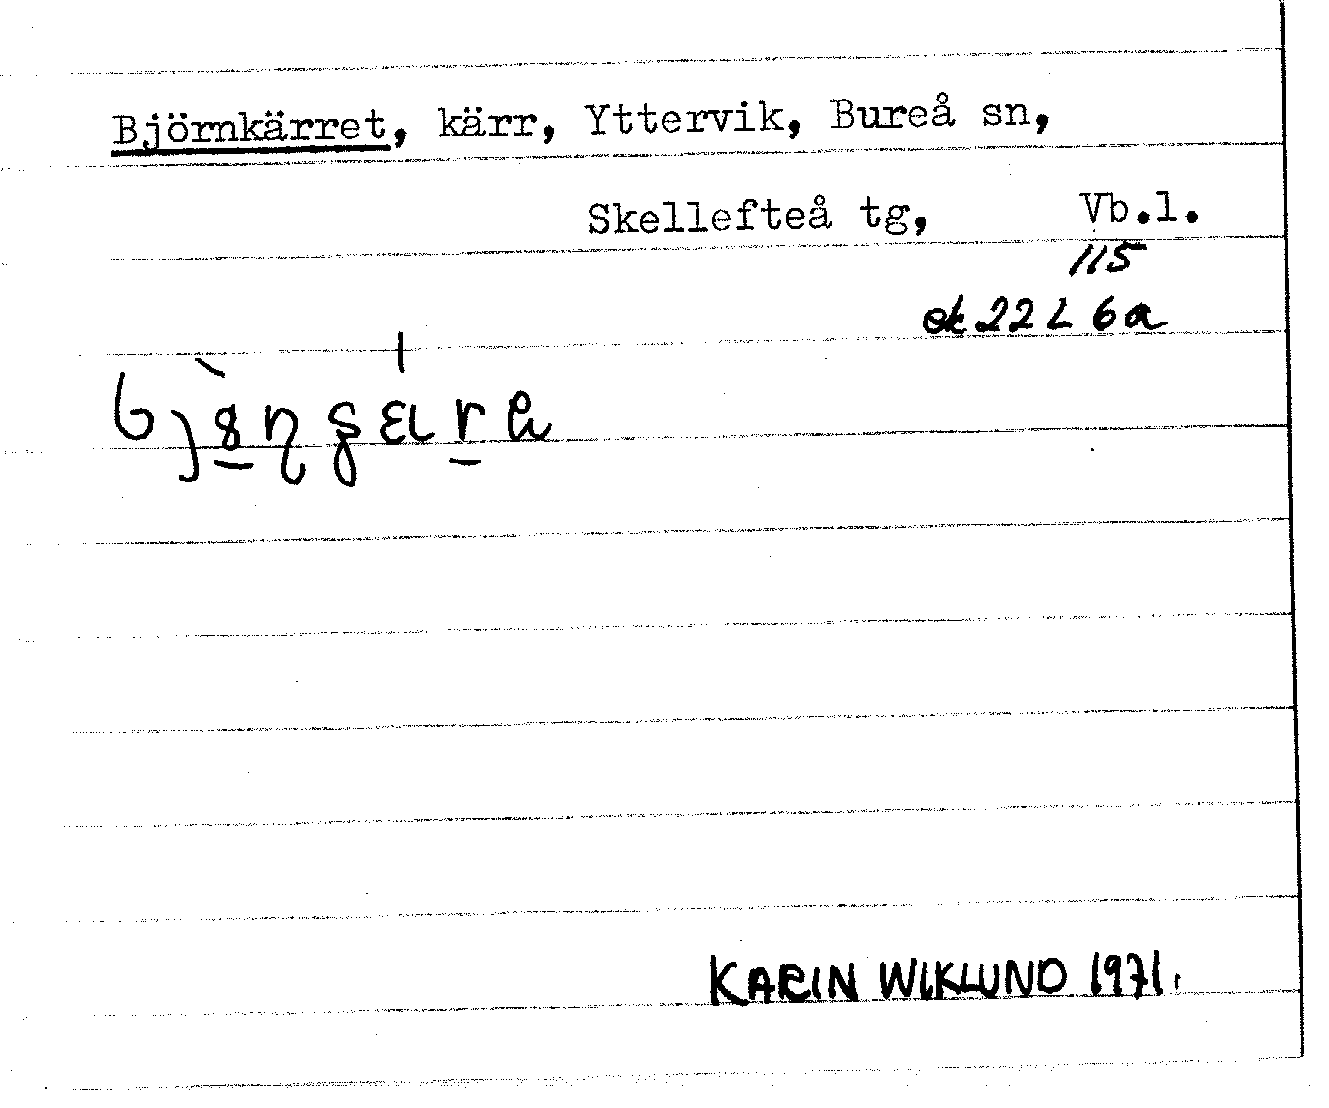 Björnkärret, kärr, Yttervik, Bureå sn,
Skellefteå tg, Vb.l.
115
ek 22 L 6a
KARIN WIKLUND 1971.